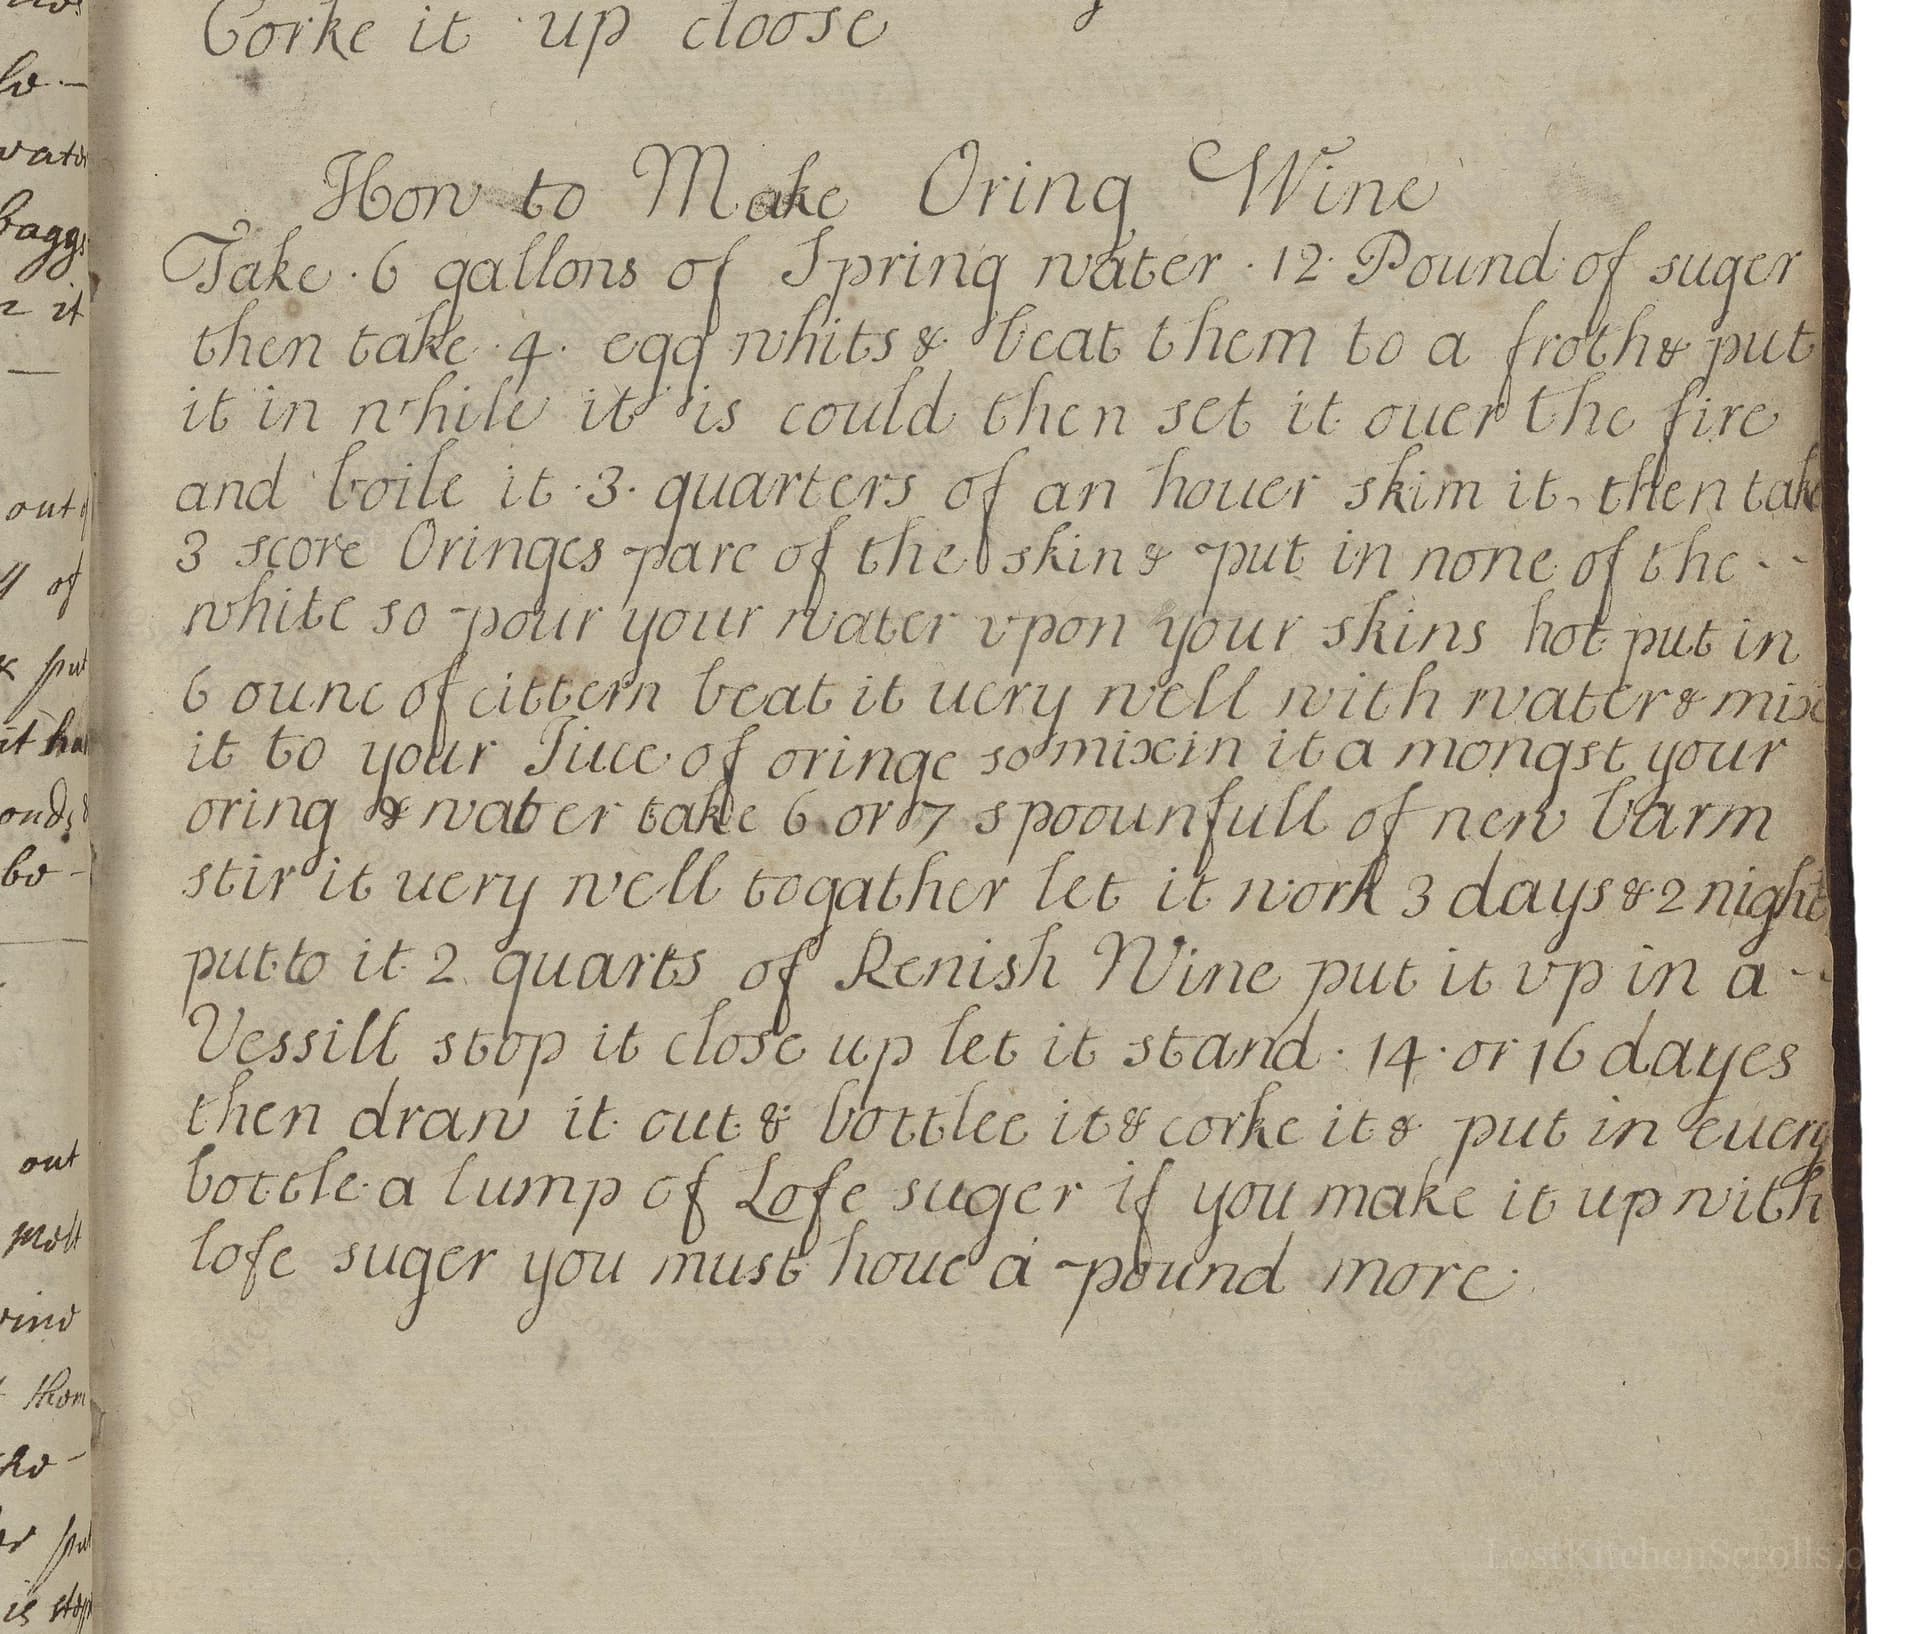 Corke it up cloose
How to Make Oring Wine
Take · 6 gallons of Spring water · 12 · Pound of suger
then take · 4 · egg whits & beat them to a froth & put
it in while it is could then set it ouer the fire
and boile it · 3 · quarters of an houer skim it, then take
3 score Oringes pare of the skin & put in none of the - -
white so pour your water vpon your skins hot put in
6 ounc of cittern beat it uery well with water & mix
it to your Jiuce of oringe so mix in it a mongst your
oring & water take 6 or 7 spoounfull of new barm
stir it uery well togather let it work 3 days & 2 night
put to it 2 quarts of Renish Wine put it vp in a - -
Vessill stop it close up let it stand · 14 · or 16 dayes
then draw it out & bottlee it & corke it & put in euery
bottle a lump of Lofe suger if you make it up with
lofe suger you must houe a pound more ·
baggs
it
out
of
put
it
out
LostKitchenScrolls.o